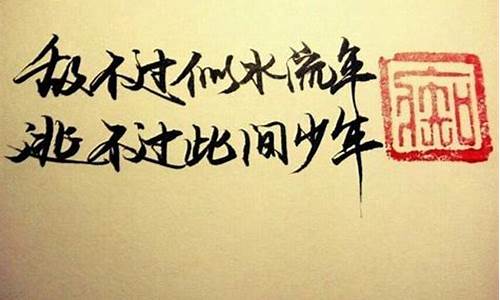 敌不过似水流年
逃不过此间少年